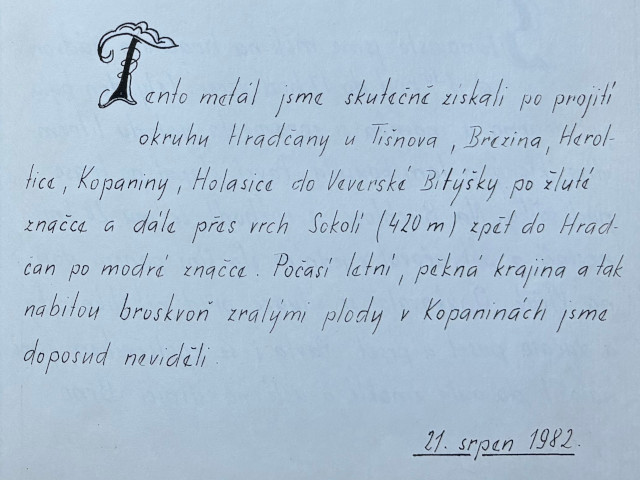 Tento metál jsme skutečně získali po projití
okruhu Hradčany u Tišnova, Březina, Herol-
tice, Kopaniny, Holasice do Veverské Bítýšky po žluté
značce a dále přes vrch Sokolí (420 m) zpět do Hrad-
čan po modré značce. Počasí letní, pěkná krajina a tak
nabitou broskvoň zralými plody v Kopaninách jsme
doposud neviděli.
21. srpen 1982.